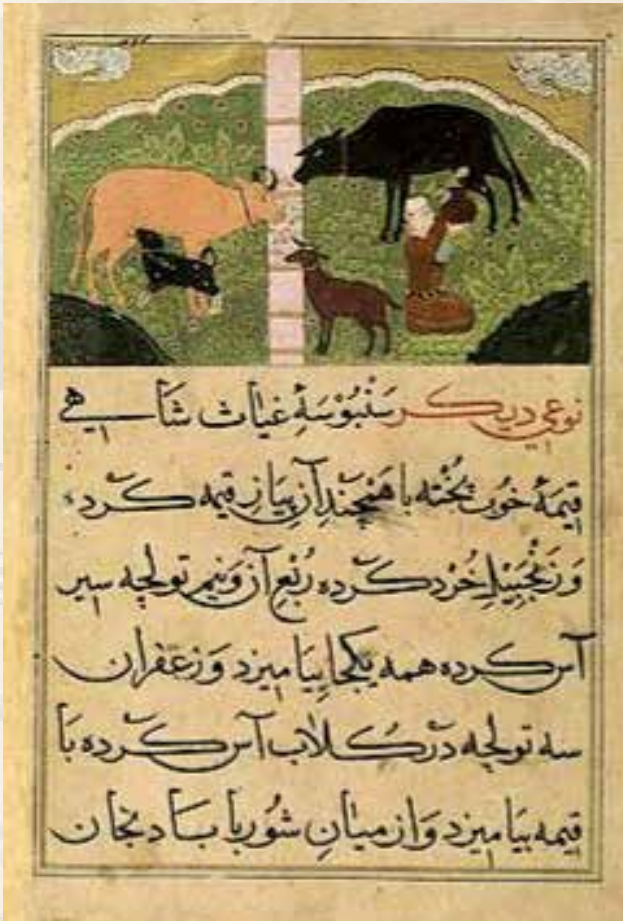 نوعی دیگر سنبوسهٔ غیاث شاهی
قیمهٔ خوب پخته با همچندِ آن پیاز قیمه کرده
و زنجبیلِ خُرد کرده رُبعِ آن و نیم تولچه سیر
آس کرده همه یکجا بیامیزد و زعفران
سه تولچه در گلاب آس کرده با
قیمه بیامیزد و از میانِ شوربا بادنجان